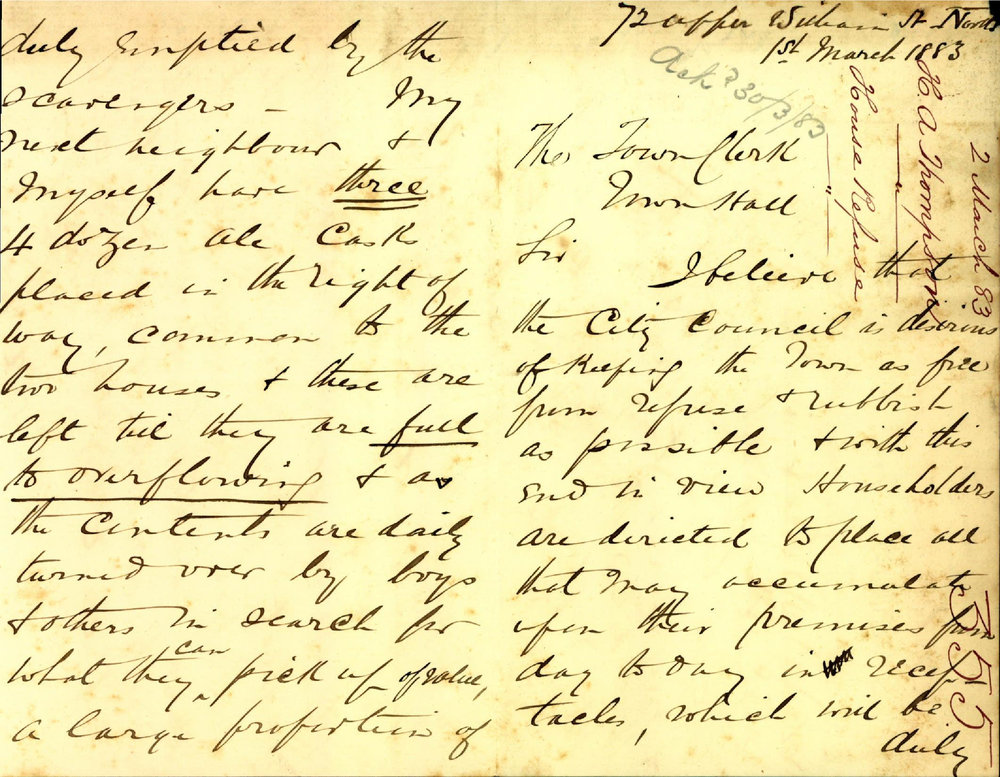 72 Upper William St North
1st March 1883
Ack d 30/3/83
2 March 83
H A Thompson
House Refuse
555
The Town Clerk
Town Hall
Sir
I believe that
the City Council is desirous
of keeping the Town as free
from refuse & rubbish
as possible & with this
end in view Householders
are directed to place all
that may accumulate
upon their premises from
day to day in recep
tacles, which will be
duly
duly emptied by the
scavengers - My
next neighbour &
Myself have three
4 dozen ale Casks
placed in the right of
way, common to the
two houses & these are
left till they are full
to overflowing & as
the contents are daily
turned over by boys
& others in search for
what they can pick up of value,
a large proportion of